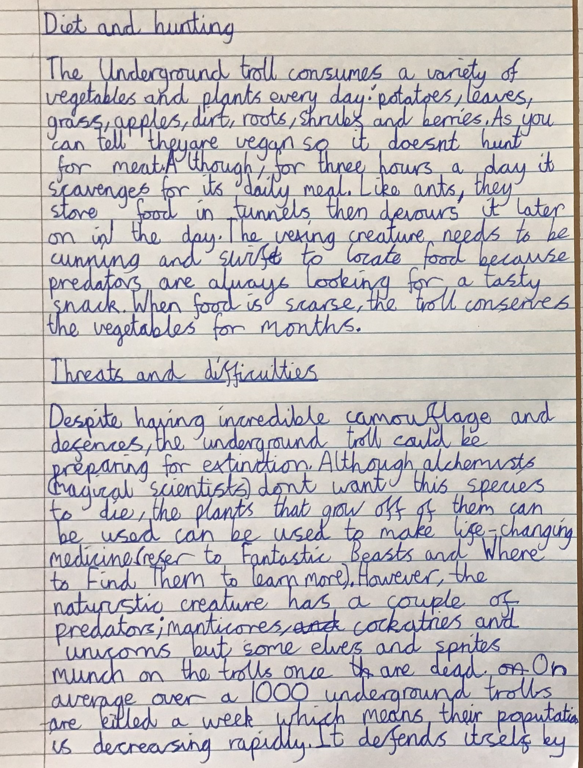 Diet and hunting
The Underground troll consumes a variety of
vegetables and plants every day: potatoes, leaves,
grass, apples, dirt, roots, shrubs and berries. As you
can tell theyare vegan so it doesnt hunt
for meat. Although, for three hours a day it
scavenges for its daily meal. Like ants, they
store food in tunnels then devours it later
on in the day. The vexing creature needs to be
cunning and swift to locate food because
predators are always looking for a tasty
snack. When food is scarse, the troll conserves
the vegetables for months.
Threats and difficulties
Despite having incredible camouflage and
defences, the underground troll could be
preparing for extinction. Although alchemists
(magical scientists) dont want this species
to die, the plants that grow off of them can
be used can be used to make life-changing
medicine (refer to Fantastic Beasts and Where
to Find Them to learn more). However, the
naturistic creature has a couple of
predators; manticores, and cockatries and
unicorns but some elves and sprites
munch on the trolls once are dead. on On
average over a 1000 underground trolls
are killed a week which means their populatio
is decreasing rapidly. It defends itself by